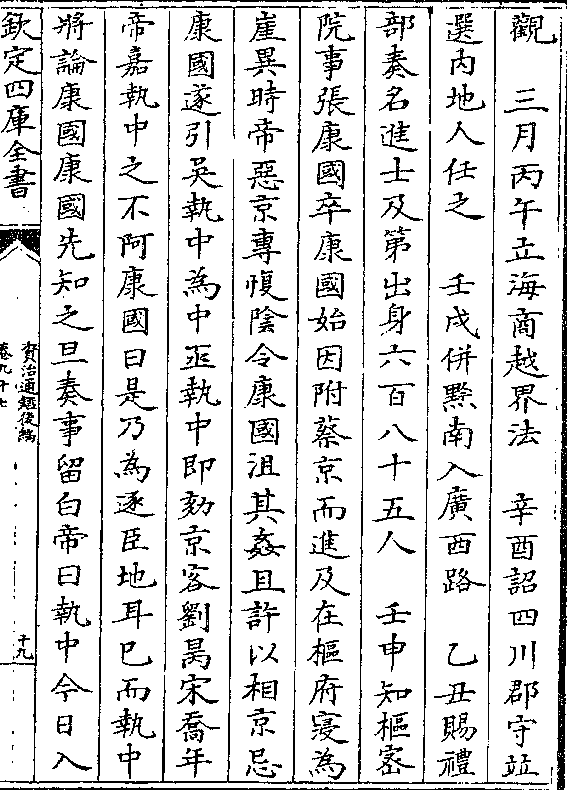 觀　三月丙午立海商越界法　辛酉詔四川郡守竝
選内地人任之　壬戌併黔南入廣西路　乙丑賜禮
部奏名進士及第出身六百八十五人　壬申知樞宻
院事張康國卒康國始因附蔡京而進及在樞府寖為
崖異時帝惡京專愎陰令康國沮其姦且許以相京忌
康國遂引吳執中為中丞執中即劾京客劉昺宋喬年
帝嘉執中之不阿康國曰是乃為逐臣地耳已而執中
將論康國康國先知之旦奏事留白帝曰執中今日入
欽定四庫全書
資治通鑑後編
卷九十七
十九